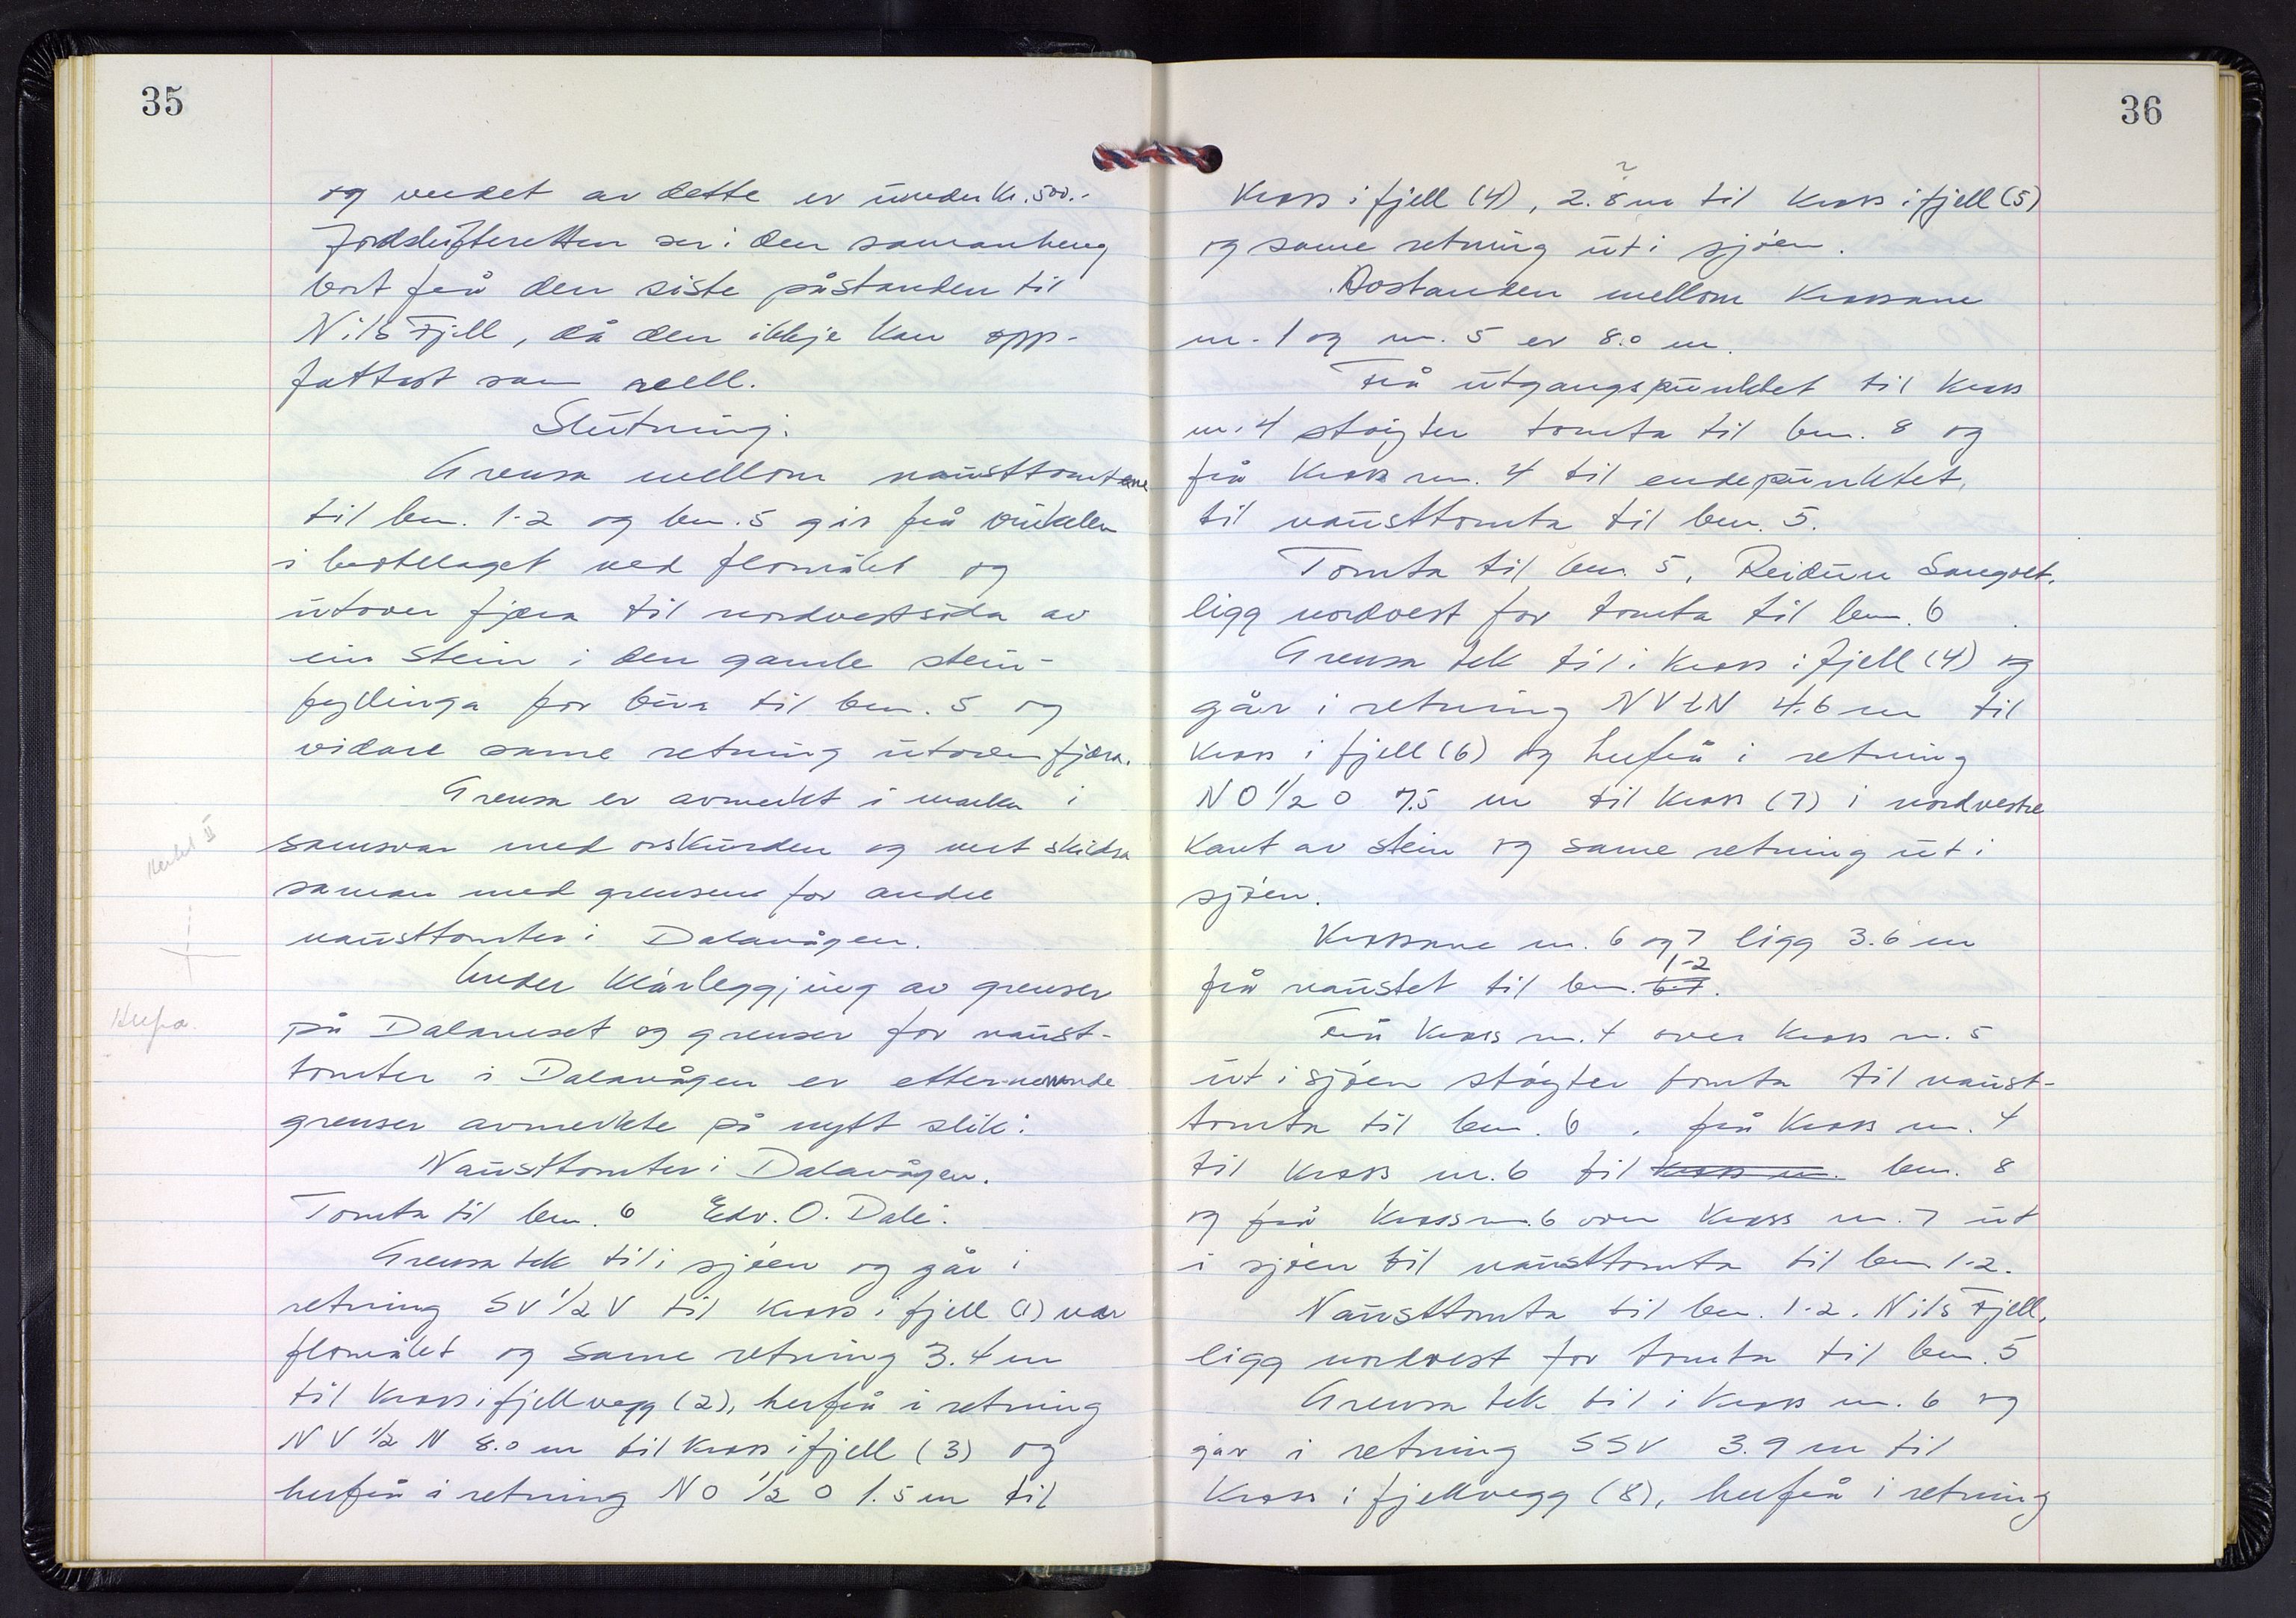 35
og verdet av dette er under Kr. 500.-
Jordskifteretten ser i den samanheng
bort frå den siste påstanden til
Nils Fjell, då den ikkje kan opp-
fattast som reell.
Slutning:
Grensa mellom nausttomtene
til bnr. 1-2 og bnr. 5 går frå vinkelen
i berdlaget ved flomålet og
utover fjæra til nordvestsida av
ein stein i den gamle stein-
fyllinga for bua til bnr. 5 og
vidare same retning utover fjæra.
Grensa er avmerkt i marka i
samsvar med orskurden og vert skildra
saman med grensene for andre
nausttomter i Dalavågen.
Under klårleggjing av grenser
på Dalaneset og grenser for naust-
tomter i Dalavågen er etternemnde
grenser avmerkte på nytt slik:
Nausttomter i Dalavågen.
Tomta til bnr. 6 Edv. O. Dale.
Grensa tek til i sjøen og går i
retning SV 1/2 V til kross i fjell (1) nær
flomålet og same retning 3.4 m
til kross i fjellvegg (2), herfrå i retning
NV 1/2 N 8.0 m til kross i fjell (3) og
herfrå i retning NO 1/2 O 1.5 m til
Herfra.
36
kross i fjell (4), 2.8 m til kross i fjell (5)
og same retning ut i sjøen.
Avstanden mellom krossane
nr. 1 og nr. 5 er 8.0 m.
Frå utgangspunktet til kross
nr. 4 støyter tomta til bnr. 8 og
frå kross nr. 4 til endepunktet,
til nausttomta til bnr. 5.
Tomta til bnr. 5, Reidun Sangolt,
ligg nordvest for tomta til bnr. 6
Grensa tek til i kross i fjell (4) og
går i retning NVtN 4.6 m til
kross i fjell (6) og herfrå i retning
NO 1/2 O 7.5 m til kross (7) i nordvestre
kant av stein og same retning ut i
sjøen.
Krossane nr. 6 og 7 ligg 3.6 m
frå naustet til bnr. 6-7. 1-2
Frå kross nr. 4 over kross nr. 5
ut i sjøen støyter tomta til naust-
tomta til bnr. 6, frå kross nr. 4
til kross nr. 6 til kross nr. bnr. 8
og frå kross nr. 6 over kross nr. 7 ut
i sjøen til nausttomta til bnr. 1-2.
Nausttomta til bnr. 1-2. Nils Fjell,
ligg nordvest for tomta til bnr. 5
Grensa tek til i kross nr. 6 og
går i retning SSV 3.9 m til
kross i fjellvegg (8), herfrå i retning